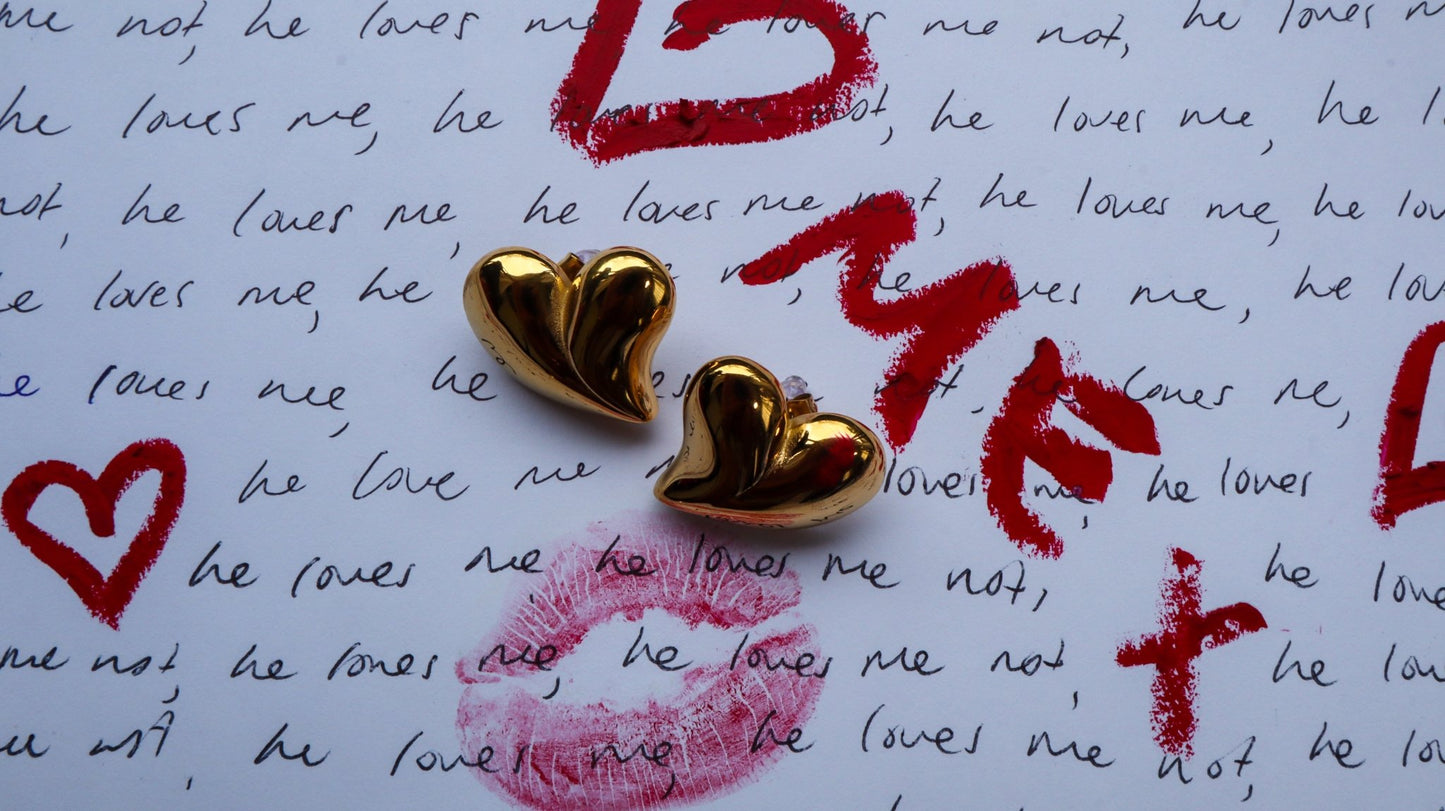 me not, he loves me he loves me not, he loves
he loves me, he loves me not, he loves me, he
not, he loves me, he loves me not, he loves me, he
loves me, he not, he loves me, he
he loves me, he not, he loves me,
he love me loves me, he loves
he loves me, he loves me not, he
me not, he loves me, he loves me not, he
not, he loves me, he loves me not, he
ME
+